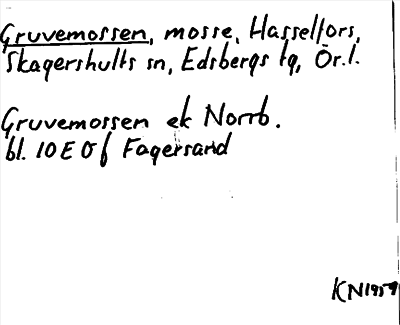 Gruvemossen, mosse, Hasselfors,
Skagershults sn, Edsbergs tg, Ör.l.
Gruvemossen ek Norrb.
bl. 10E 0f Fagersand
KN1959